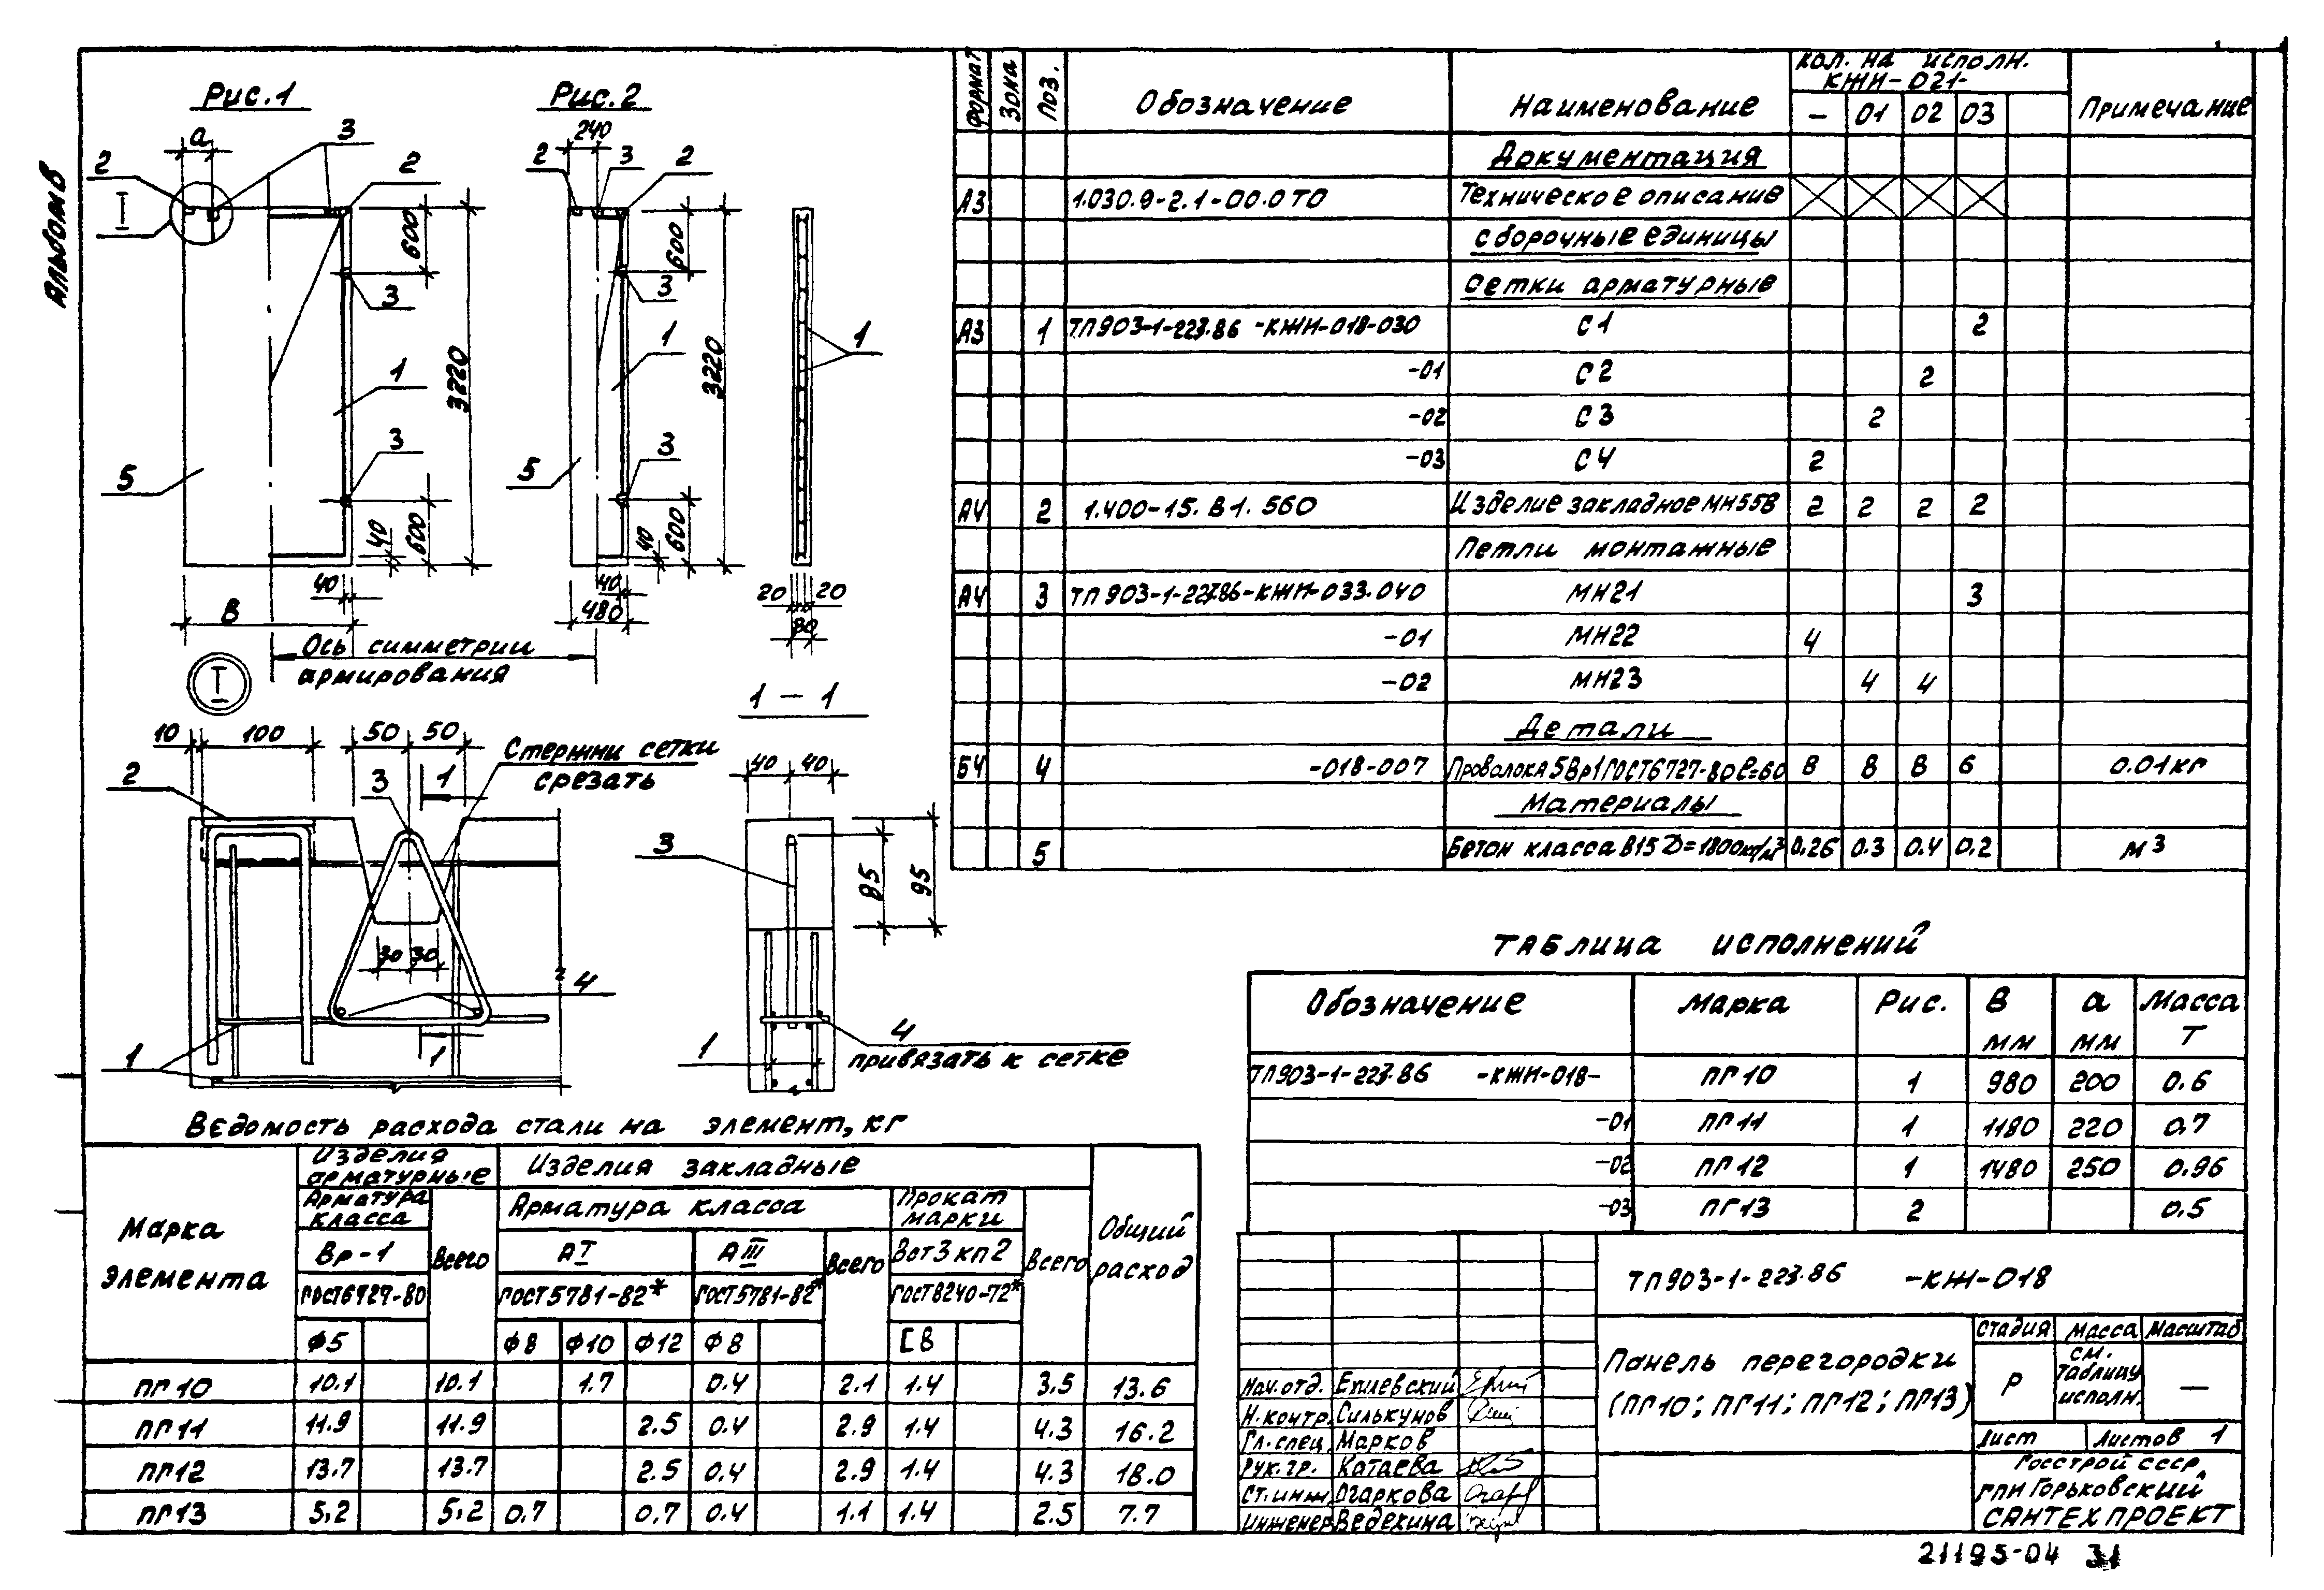 Альбом 8
Рис.1
Рис.2
а
3
2
2
I
600
3
1
3220
3
5
40
600
40
В
240
2
3
2
600
3
1
3220
3
5
40
600
40
480
1
20
20
80
Ось симметрии
армирования
I
1 – 1
10
100
50
50
Стержни сетки
срезать
2
3
1
30
30
4
1
1
40
40
3
85
95
4
привязать к сетке
1
Формат
Зона
Поз.
Обозначение
Наименование
Кол. на исполн.
КЖИ-021-
– 01 02 03
Примечание
Документация
А3 1.030.9-2.1-00.0 ТО Техническое описание
Сборочные единицы
Сетки арматурные
А3 1 ТП903-1-227.86 -КЖИ-018-030 С1 2
-01 С2 2
-02 С3 2
-03 С4 2
А4 2 1.400-15.В1.560 Изделие закладное МН558 2 2 2 2
Петли монтажные
А4 3 ТП903-1-227.86-КЖИ-033.040 МН21 3
-01 МН22 4
-02 МН23 4 4
Детали
БЧ 4 -018-007 Проволока 5Вр1 ГОСТ6727-80 ℓ=60 8 8 8 6 0.01кг
Материалы
5 Бетон класса В15 D=1800кг/м³ 0.26 0.3 0.4 0.2 м³
Таблица исполнений
Обозначение Марка Рис. В мм а мм Масса Т
ТП903-1-227.86 -КЖИ-018- ПГ10 1 980 200 0.6
-01 ПГ11 1 1180 220 0.7
-02 ПГ12 1 1480 250 0.96
-03 ПГ13 2 0.5
Ведомость расхода стали на элемент, кг
Марка
элемента
Изделия
арматурные
Изделия закладные
Общий
расход
Арматура
класса
Всего
Арматура класса
Всего
Прокат
марки
Всего
Вр-1
АI
АIII
Вст3кп2
ГОСТ6727-80
ГОСТ5781-82*
ГОСТ5781-82*
ГОСТ8240-72*
ф5 ф8 ф10 ф12 ф8 [8
ПГ10 10.1 10.1 1.7 0.4 2.1 1.4 3.5 13.6
ПГ11 11.9 11.9 2.5 0.4 2.9 1.4 4.3 16.2
ПГ12 13.7 13.7 2.5 0.4 2.9 1.4 4.3 18.0
ПГ13 5,2 5,2 0.7 0.7 0.4 1.1 1.4 2.5 7.7
ТП903-1-227.86 -КЖ-018
Панель перегородки
(ПГ10; ПГ11; ПГ12; ПГ13)
Стадия Масса Масштаб
Р
см.
таблицу
исполн.
—
Лист Листов 1
Госстрой СССР,
ГПИ Горьковский
САНТЕХПРОЕКТ
Нач.отд. Епилевский
Н.контр. Силькунов
Гл.спец. Марков
Рук.гр. Катаева
Ст.инж Огаркова
Инженер Ведехина
21195-04 31